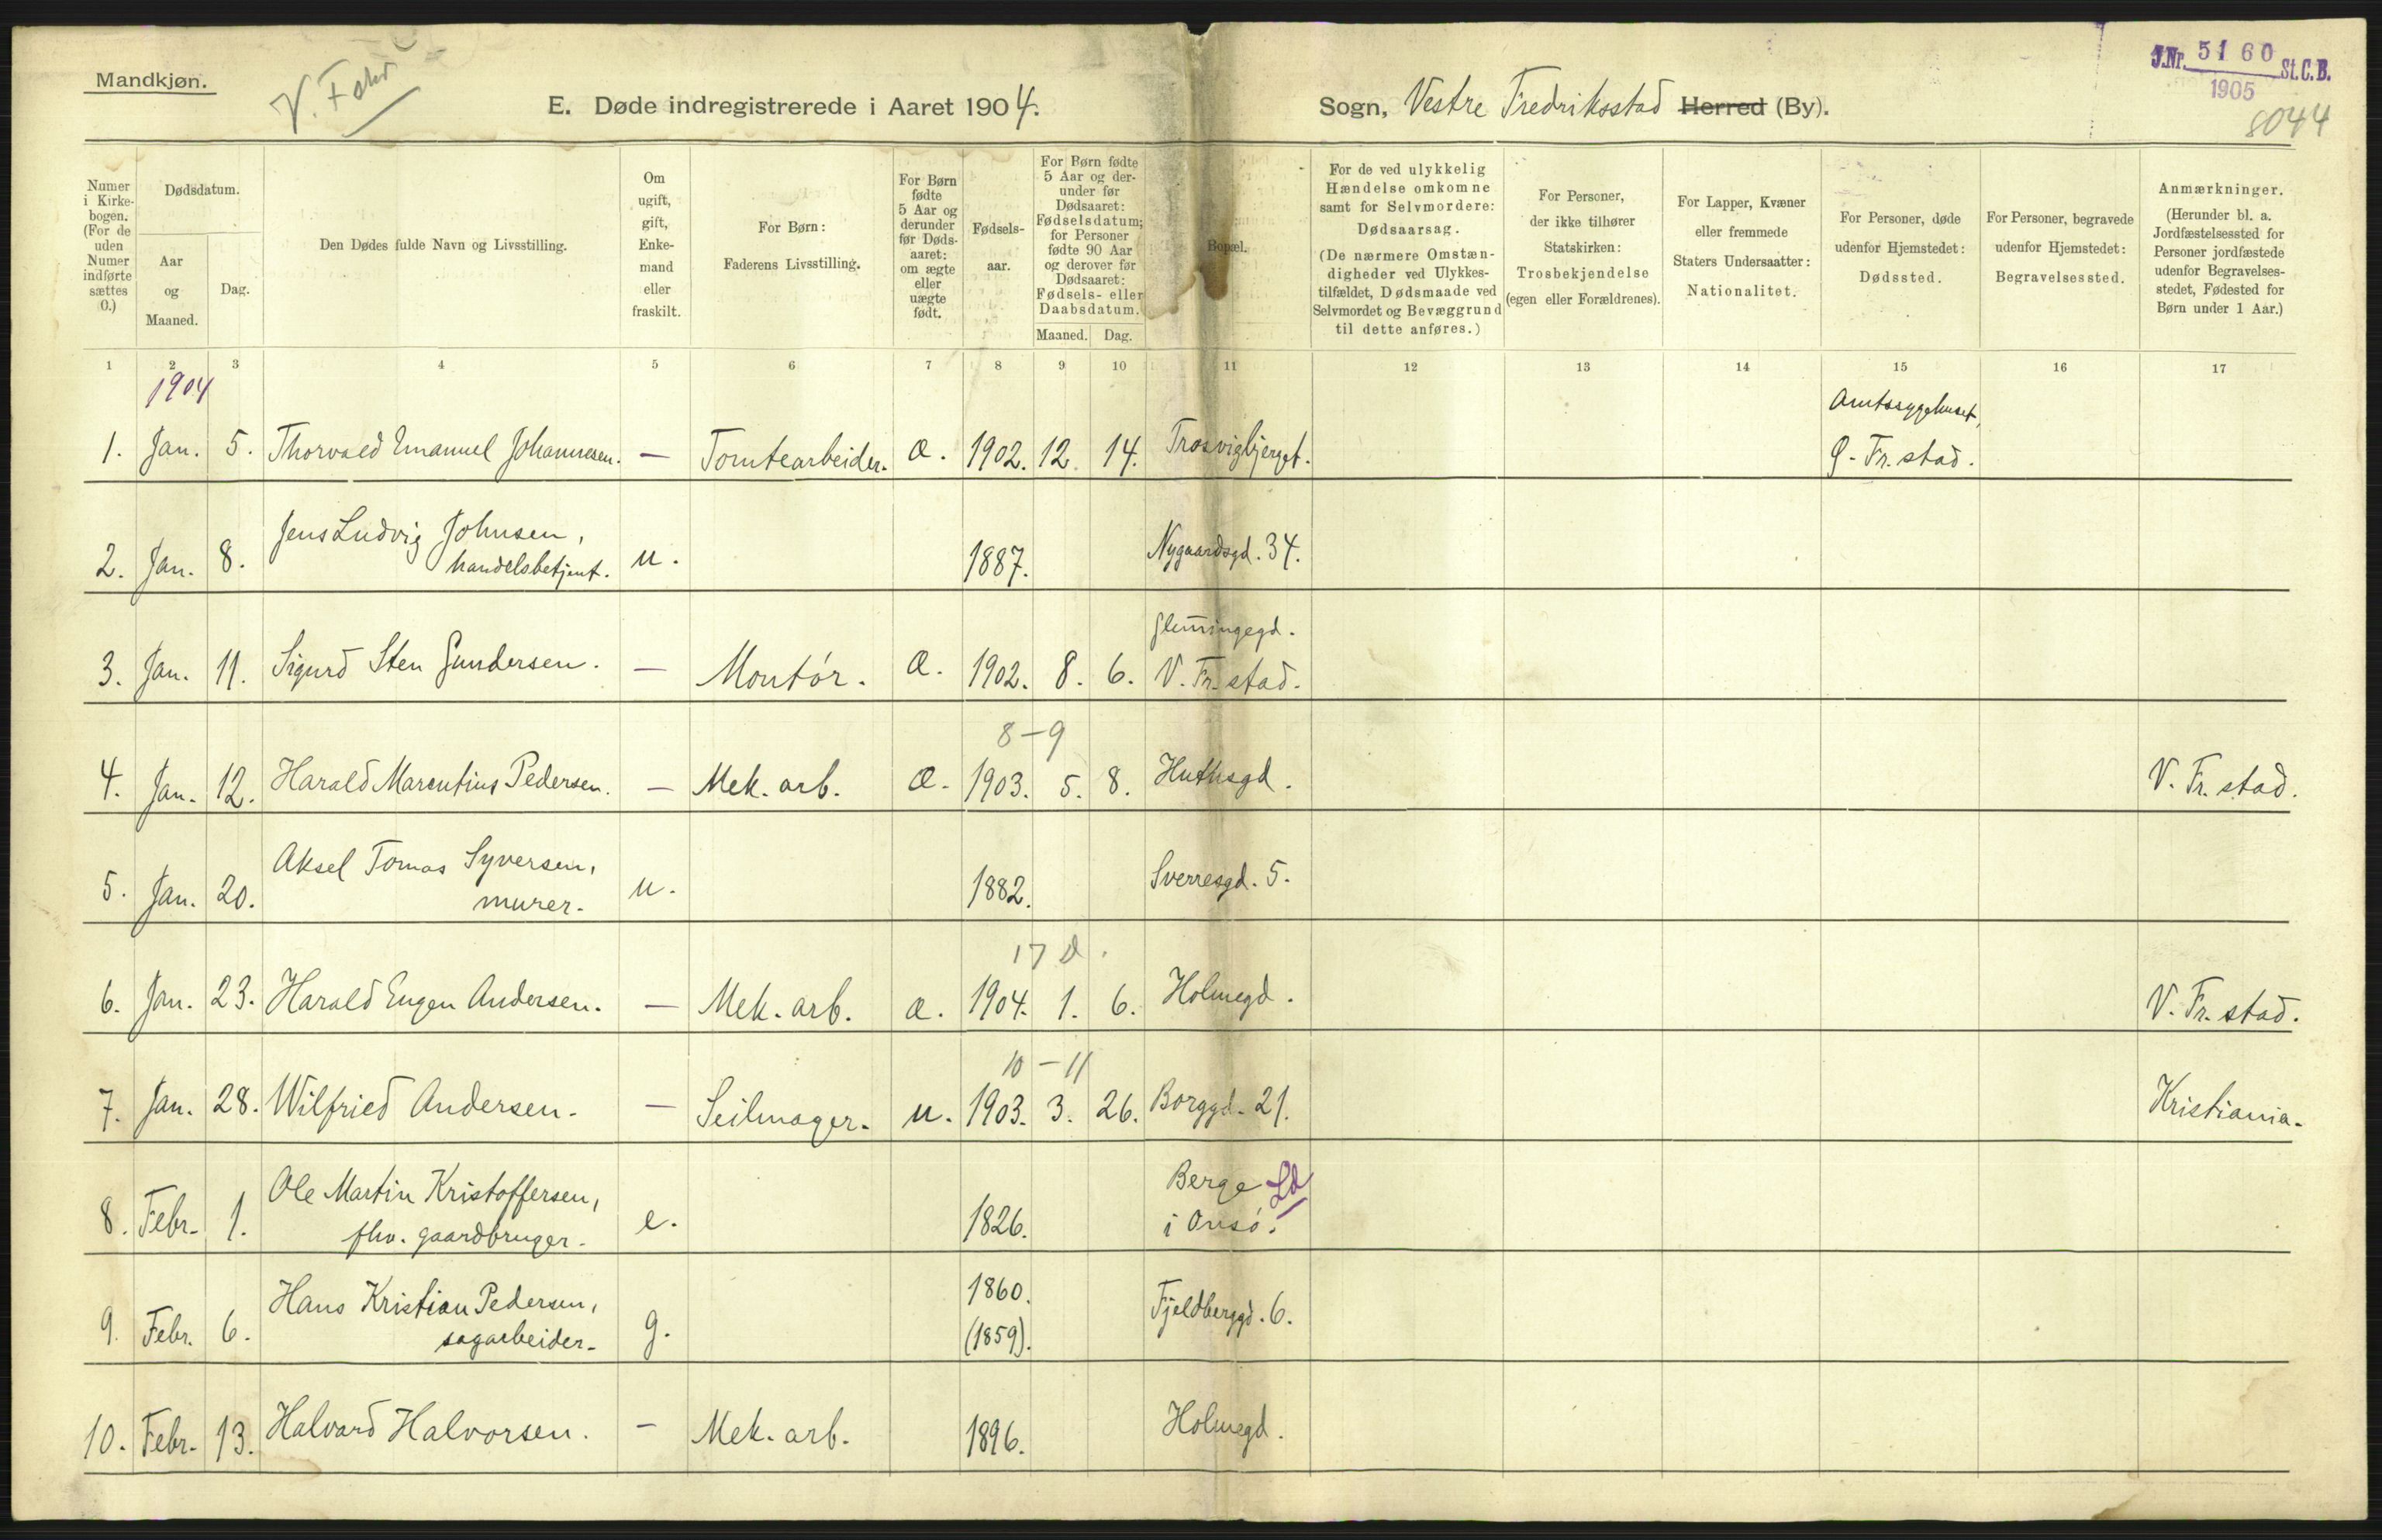 Mandkjøn.
E. Døde indregistrerede i Aaret 1904.
Sogn, Vestre Fredriksstad Herred (By).
J.Nr. 5160 St.C.B.
1905
8044
Numer i Kirkebogen. (For de uden Numer indførte sættes 0.)
Dødsdatum.
Aar og Maaned.
Dag.
Den Dødes fulde Navn og Livsstilling.
Om ugift, gift, Enkemand eller fraskilt.
For Børn: Faderens Livsstilling.
For Børn fødte 5 Aar og derunder før Dødsaaret: om ægte eller uægte født.
Fødselsaar.
For Børn fødte 5 Aar og derunder før Dødsaaret: Fødselsdatum; for Personer fødte 90 Aar og derover før Dødsaaret: Fødsels- eller Daabsdatum.
Maaned. Dag.
Bopæl.
For de ved ulykkelig Hændelse omkomne samt for Selvmordere: Dødsaarsag. (De nærmere Omstændigheder ved Ulykkestilfældet, Dødsmaade ved Selvmordet og Bevæggrund til dette anføres.)
For Personer, der ikke tilhører Statskirken: Trosbekjendelse (egen eller Forældrenes).
For Lapper, Kvæner eller fremmede Staters Undersaatter: Nationalitet.
For Personer, døde udenfor Hjemstedet: Dødssted.
For Personer, begravede udenfor Hjemstedet: Begravelsessted.
Anmærkninger. (Herunder bl. a. Jordfæstelsessted for Personer jordfæstede udenfor Begravelsesstedet, Fødested for Børn under 1 Aar.)
1 2 3 4 5 6 7 8 9 10 11 12 13 14 15 16 17
1904
1. Jan. 5. Thorvald Emanuel Johannesen. — Tomtearbeider. æ. 1902. 12. 14. Trosvigbjerget. Amtssygehuset, Ø. Fr.stad.
2. Jan. 8. Jens Ludvig Johnsen, handelsbetjent. u. 1887. Nygaardsgd. 34.
3. Jan. 11. Sigurd Sten Gundersen. — Montør. æ. 1902. 8. 6. Glemingegd. V. Fr.stad.
8-9
4. Jan. 12. Harald Marentius Pedersen. — Mek. arb. æ. 1903. 5. 8. Huthsgd. V. Fr.stad.
5. Jan. 20. Aksel Tomas Syversen, murer. u. 1882. Sverresgd. 5.
17 d.
6. Jan. 23. Harald Eugen Andersen. — Mek. arb. æ. 1904. 1. 6. Holmegd. V. Fr.stad.
10-11
7. Jan. 28. Wilfried Andersen. — Seilmager. u. 1903. 3. 26. Borggd. 21. Kristiania.
8. Febr. 1. Ole Martin Kristoffersen, fhv. gaardbruger. e. 1826. Berge i Onsø. Ld
9. Febr. 6. Hans Kristian Pedersen, sagarbeider. g. 1860. (1859). Fjeldberggd. 6.
10. Febr. 13. Halvard Halvorsen. — Mek. arb. 1896. Holmegd.